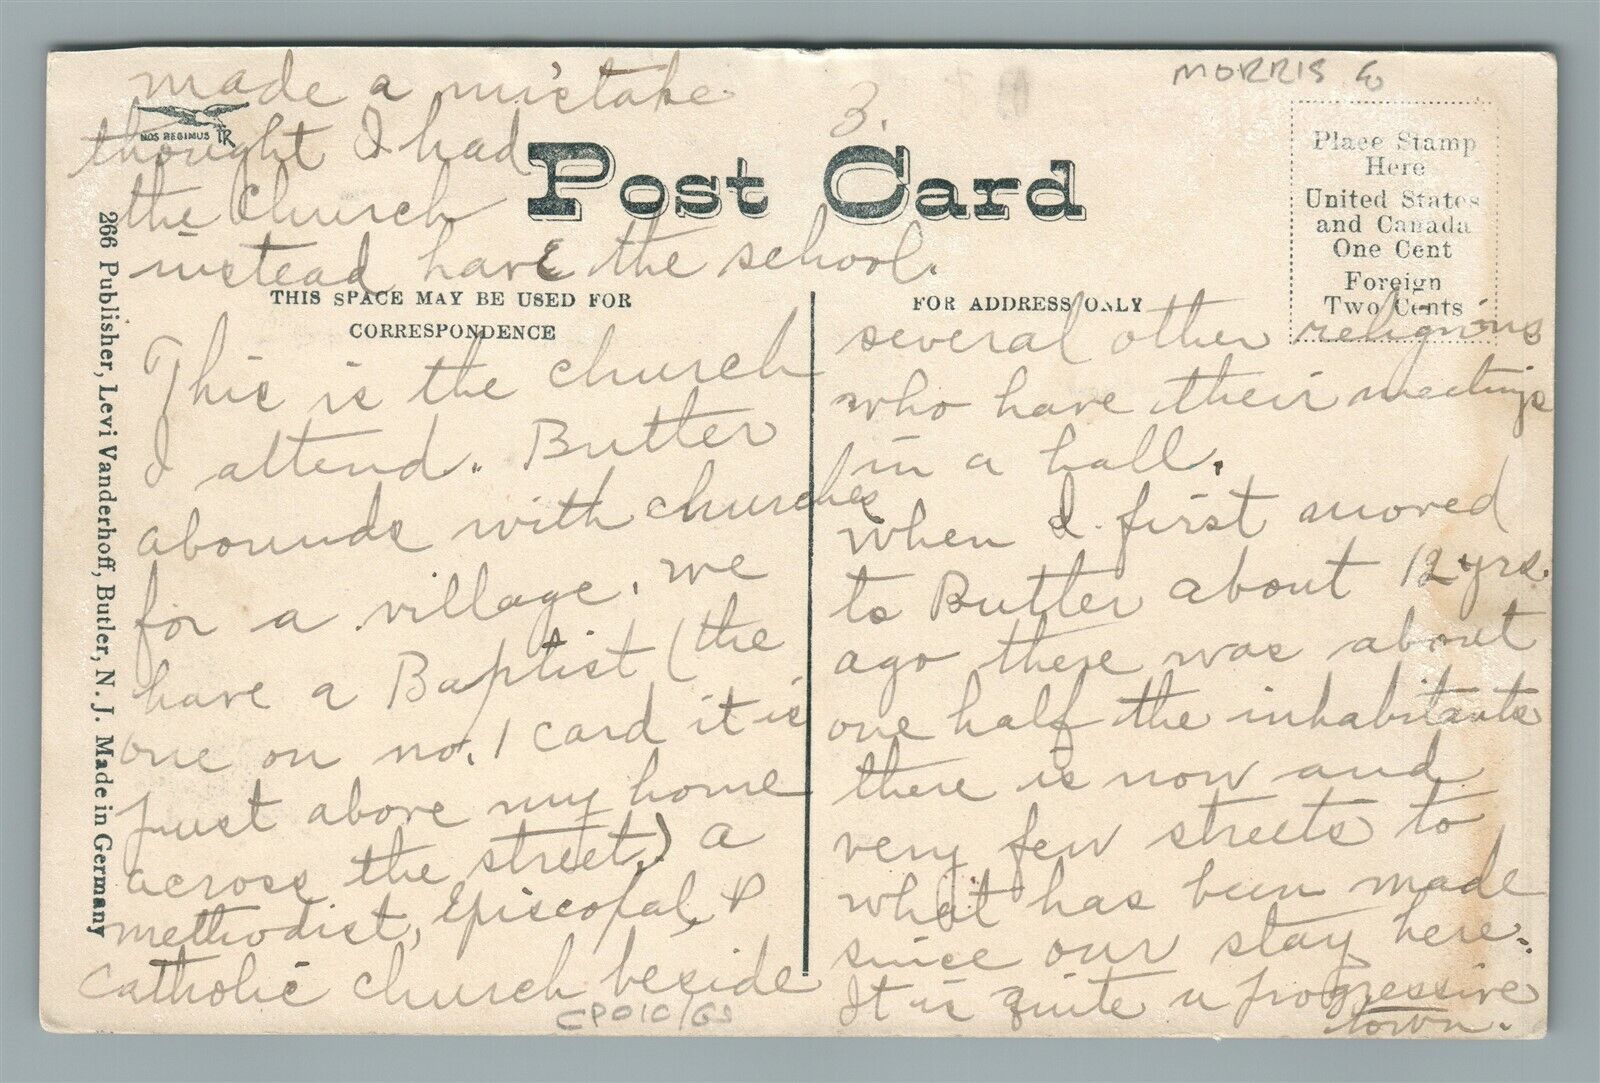 MORRIS Co
3.
made a mistake
thought I had
the church
instead have the school.
NOS REGIMUS
Post Card
Place Stamp
Here
United States
and Canada
One Cent
Foreign
Two Cents
THIS SPACE MAY BE USED FOR
CORRESPONDENCE
FOR ADDRESS ONLY
266 Publisher, Levi Vanderhoff, Butler, N. J. Made in Germany
This is the church
I attend. Butler
abounds with churches
for a village. we
have a Baptist (the
one on no. 1 card it is
just above my home
across the street.) a
methodist, Episcopal, &
Catholic church beside
several other religions
who have their meetings
in a hall.
when I first moved
to Butler about 12 yrs.
ago there was about
one half the inhabitants
there is now and
very few streets to
what has been made
since our stay here.
It is quite a progressive
town.